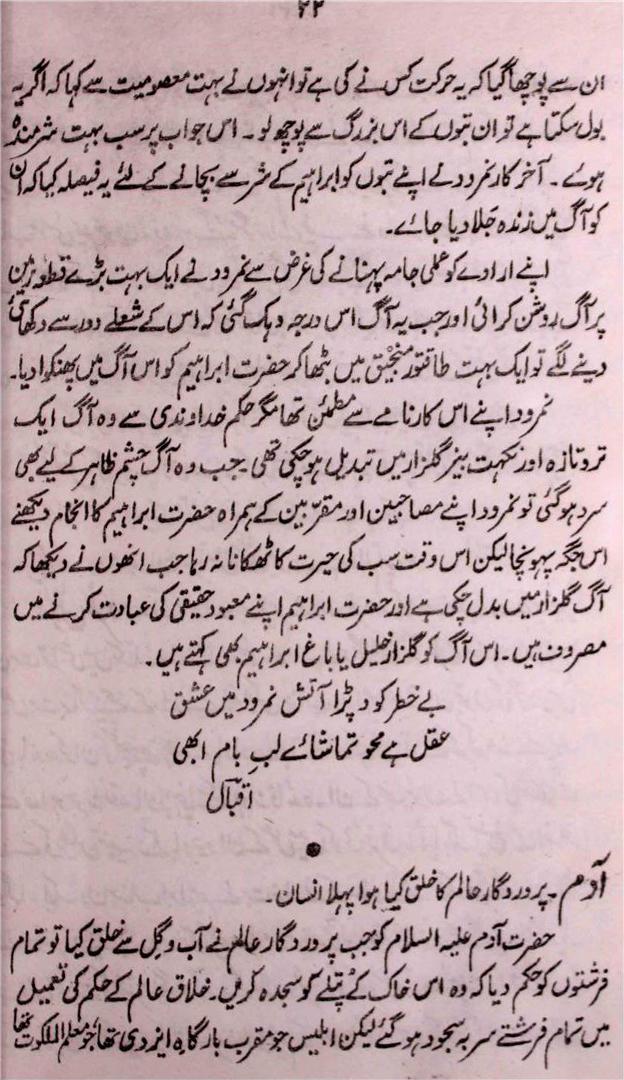 ۲۲
ان سے پوچھا گیا کہ یہ حرکت کس نے کی ہے تو انہوں نے بہت معصومیت سے کہا کہ اگر یہ
بول سکتا ہے تو ان بتوں کے اس بزرگ سے پوچھ لو۔ اس جواب پر سب بہت شرمندہ
ہوئے۔ آخر کار نمرود نے اپنے بتوں کو ابراہیم کے شر سے بچانے کے لئے یہ فیصلہ کیا کہ ان
کو آگ میں زندہ جلا دیا جائے۔
اپنے ارادے کو عملی جامہ پہنانے کی غرض سے نمرود نے ایک بہت بڑے قطعۂ زمین
پر آگ روشن کرائی اور جب یہ آگ اس درجہ دہک گئی کہ اس کے شعلے دور سے دکھائی
دینے لگے تو ایک بہت طاقتور منجنیق میں بٹھا کر حضرت ابراہیم کو اس آگ میں پھنکوا دیا۔
نمرود اپنے اس کارنامے سے مطمئن تھا مگر حکم خداوندی سے وہ آگ ایک
تر و تازہ اور نکہت بیز گلزار میں تبدیل ہو چکی تھی۔ جب وہ آگ چشم ظاہر کے لیے بھی
سرد ہو گئی تو نمرود اپنے مصاحبین اور مقربین کے ہمراہ حضرت ابراہیم کا انجام دیکھنے
اس جگہ پہونچا لیکن اس وقت سب کی حیرت کا ٹھکانا نہ رہا جب انھوں نے دیکھا کہ
آگ گلزار میں بدل چکی ہے اور حضرت ابراہیم اپنے معبود حقیقی کی عبادت کرنے میں
مصروف ہیں۔ اس آگ کو گلزار خلیل یا باغ ابراہیم بھی کہتے ہیں۔
بے خطر کود پڑا آتش نمرود میں عشق
عقل ہے محو تماشائے لبِ بام ابھی
اقبال
آدم۔ پروردگار عالم کا خلق کیا ہوا پہلا انسان۔
حضرت آدم علیہ السلام کو جب پروردگار عالم نے آب و گِل سے خلق کیا تو تمام
فرشتوں کو حکم دیا کہ وہ اس خاک کے پُتلے کو سجدہ کریں۔ خلاق عالم کے حکم کی تعمیل
میں تمام فرشتے سر بہ سجود ہو گئے لیکن ابلیس جو مقرب بارگاہ ایزدی تھا جو معلم الملکوت تھا